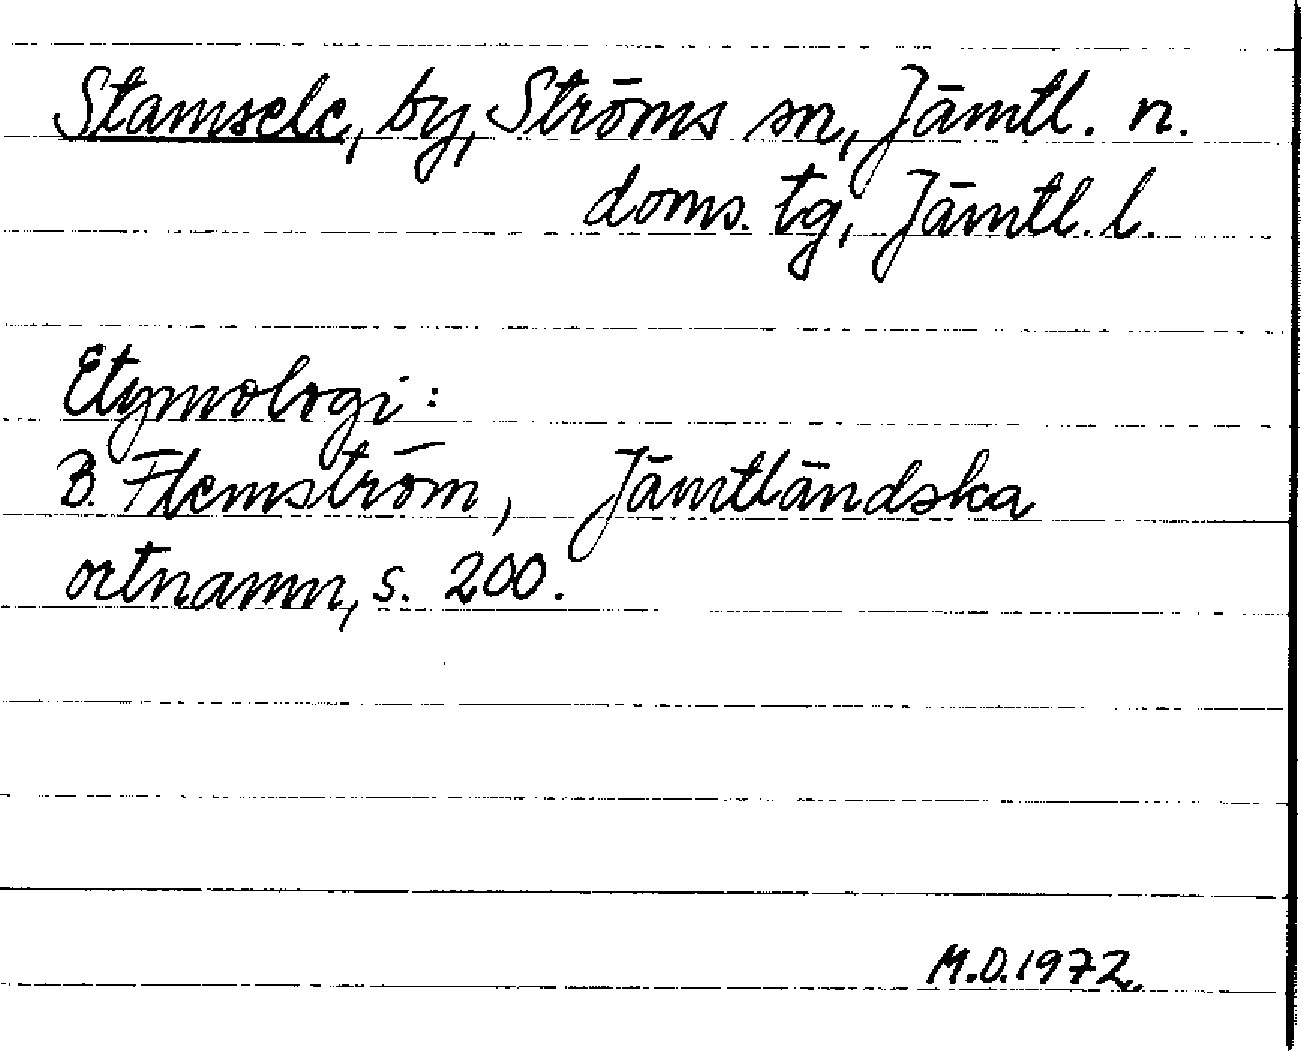 Stamsele, by, Ströms sn, Jämtl. n.
doms. tg, Jämtl. l.
Etymologi:
B. Flemström, Jämtländska
ortnamn, s. 200.
M.O.1972.